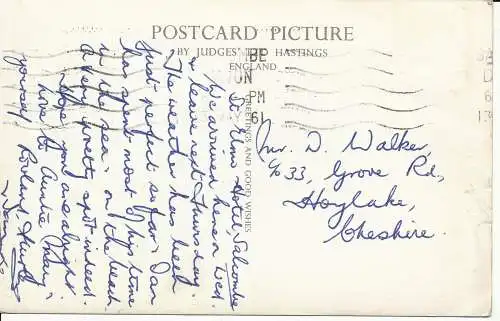 POSTCARD PICTURE
BY JUDGES' LTD HASTINGS
ENGLAND
BE
JUN
PM
61
GREETINGS AND GOOD WISHES
St Elms Hotel Salcombe
We arrived here on Wed.
& leave next Thursday.
The weather has been
just perfect so far. Ian
has spent most of his time
in the sea or on the beach.
A very pretty spot indeed.
Hope you are alright.
Love to Auntie May &
yourself
Mr. D. Walker,
c/o 33, Grove Rd.,
Hoylake,
Cheshire.